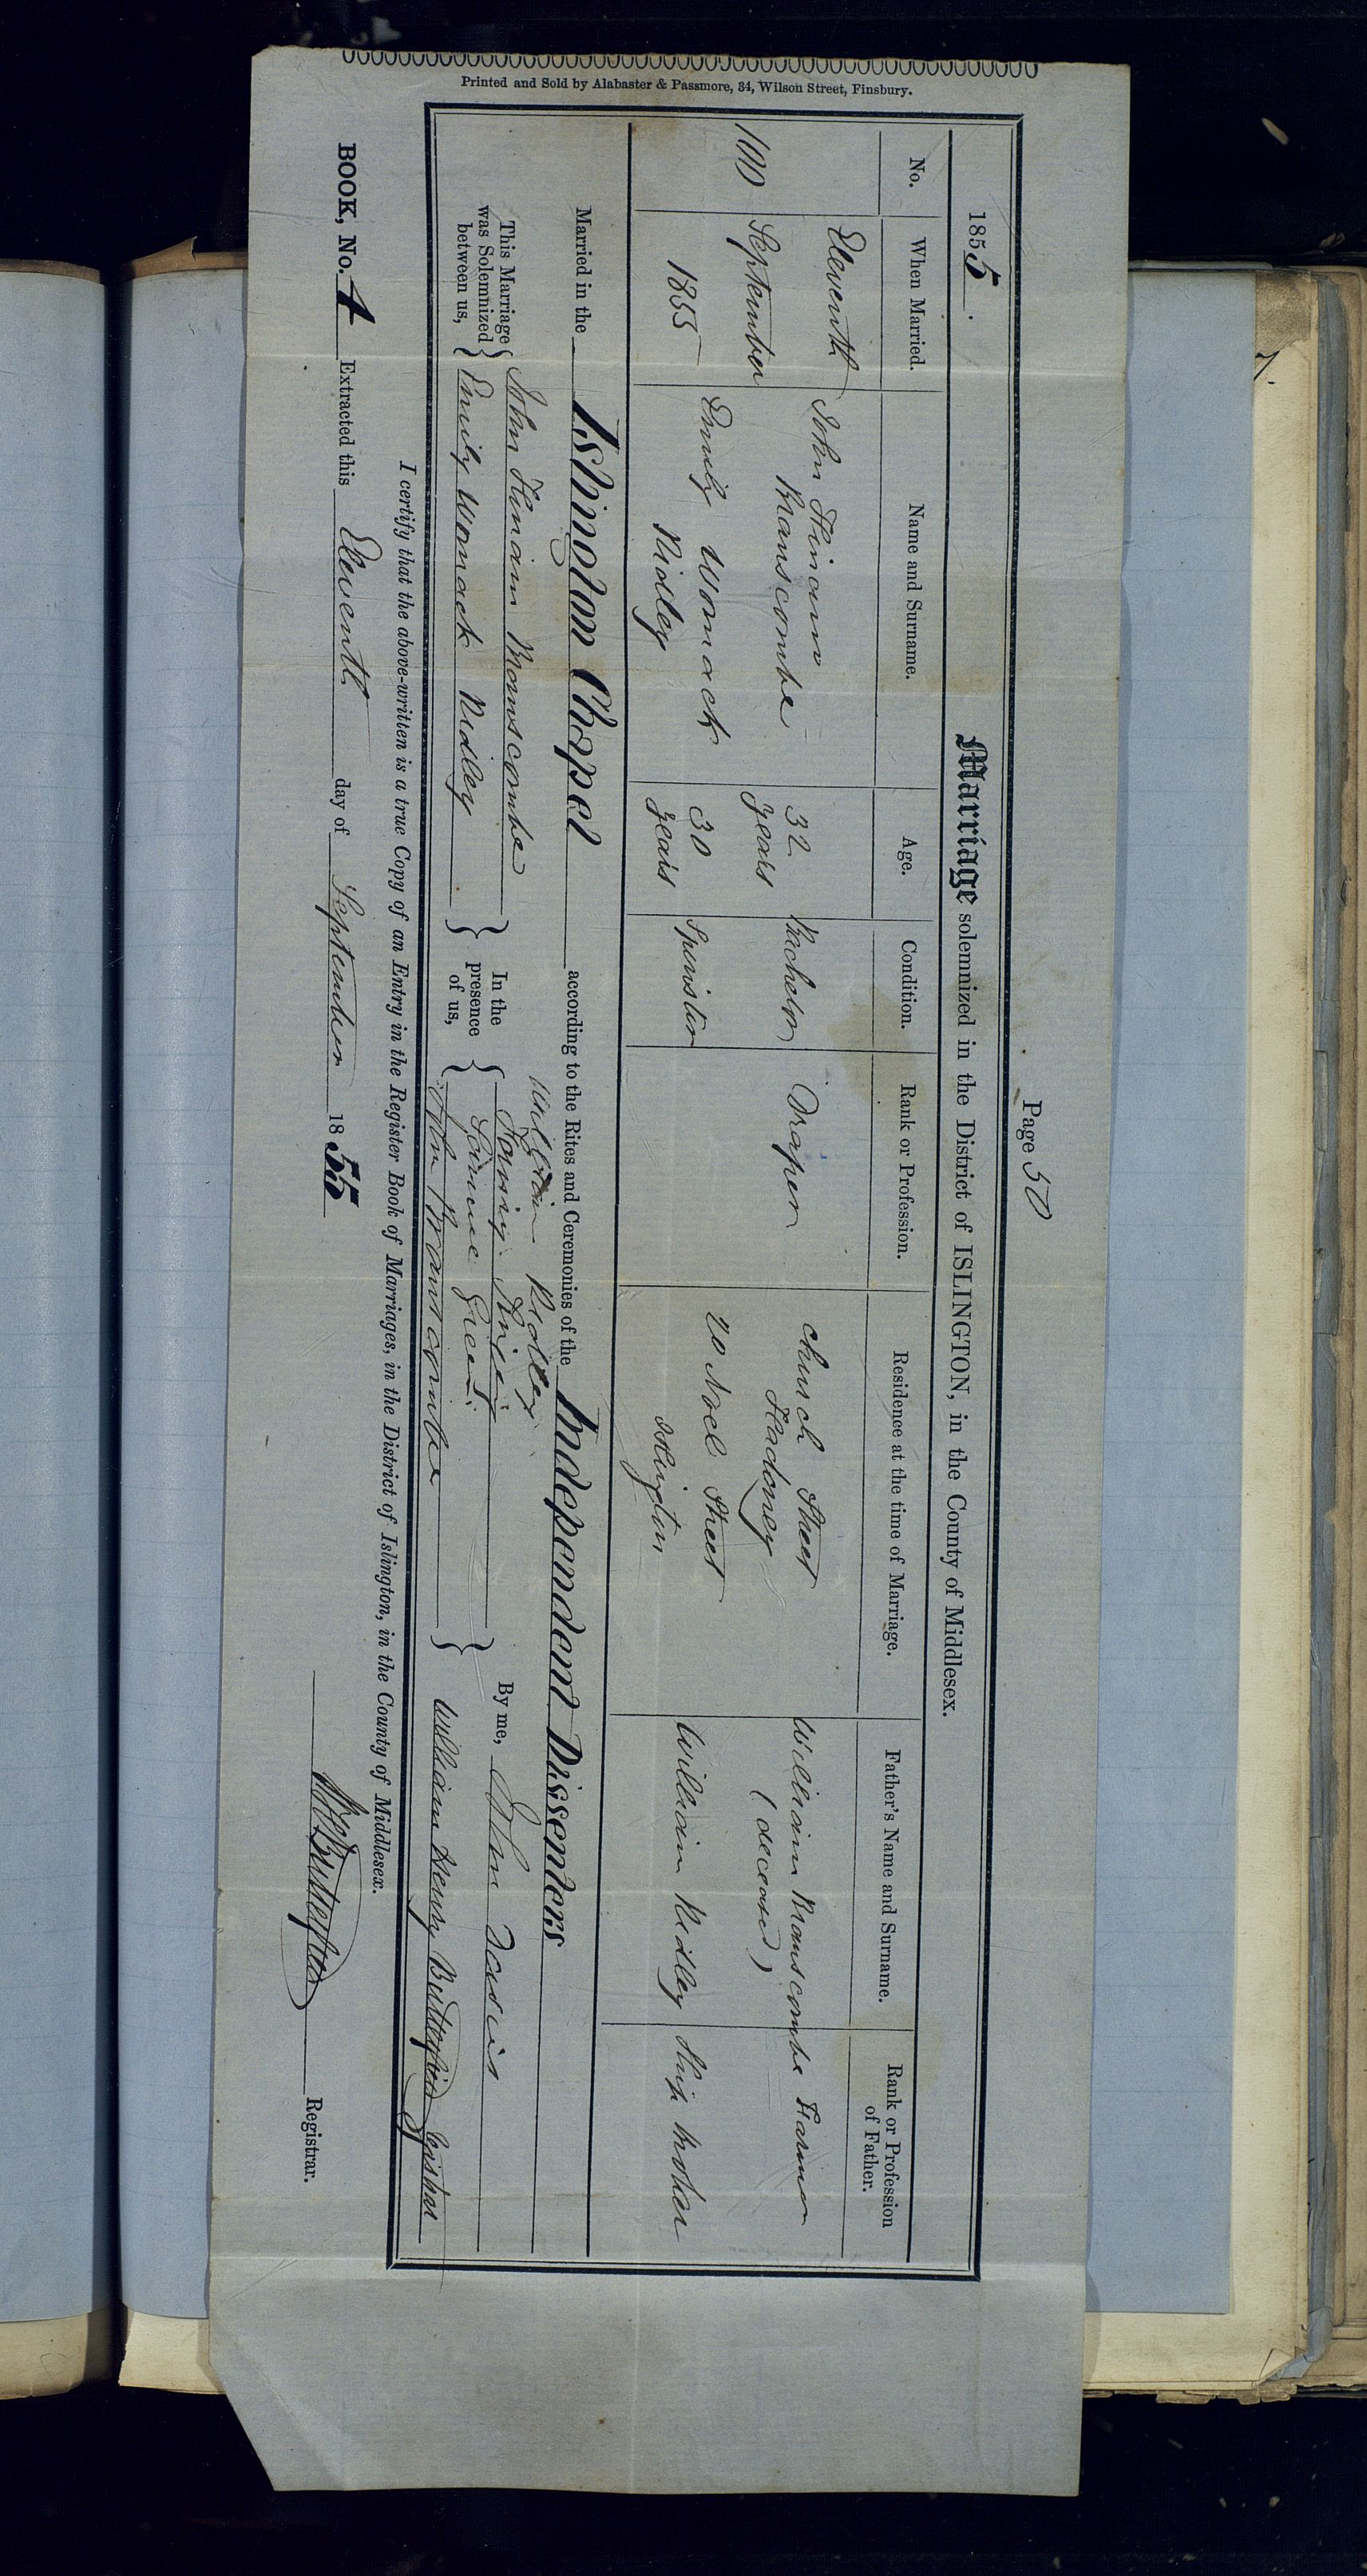 Printed and Sold by Alabaster & Passmore, 34, Wilson Street, Finsbury.
Page 50
1855. Marriage solemnized in the District of ISLINGTON, in the County of Middlesex.
No. When Married. Name and Surname. Age. Condition. Rank or Profession. Residence at the time of Marriage. Father's Name and Surname. Rank or Profession of Father.
100 Eleventh September 1855
John Branscombe 32 years Bachelor Draper Church Street Hackney William Branscombe (deceased) Farmer
Emily Womack Ridley 30 years Spinster 20 Noel Street Islington William Ridley Ship Broker
Married in the Islington Chapel according to the Rites and Ceremonies of the Independent Dissenters
This Marriage was Solemnized between us,
John Branscombe
Emily Womack Ridley
In the presence of us,
William Ridley
Samuel Green
John Branscombe
By me, John
William Henry Butterfield Registrar
I certify that the above-written is a true Copy of an Entry in the Register Book of Marriages, in the District of Islington, in the County of Middlesex.
BOOK, No. 4 Extracted this Eleventh day of September 1855
W H Butterfield Registrar.
7.